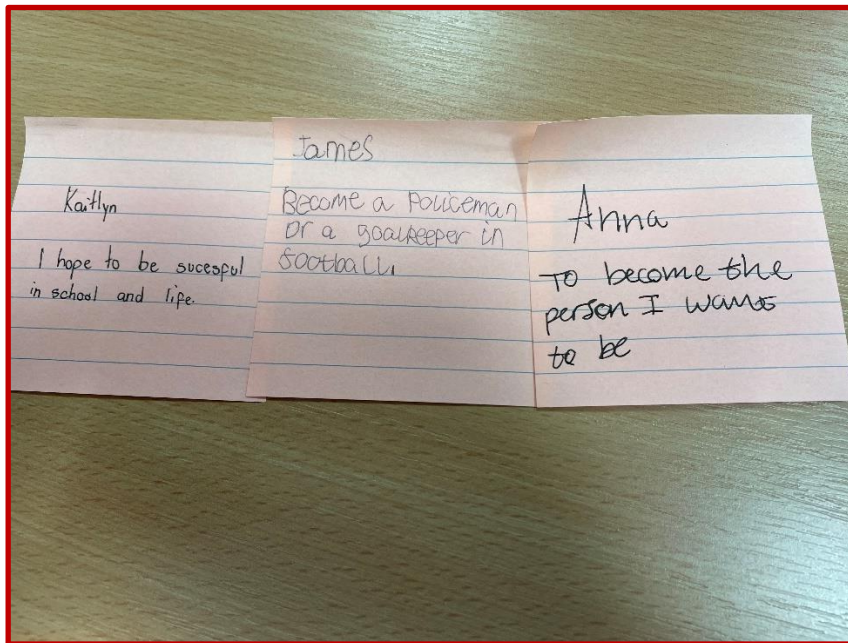 Kaitlyn
I hope to be sucesful
in school and life.
James
Become a Policeman
or a goalkeeper in
football.
Anna
To become the
person I want
to be